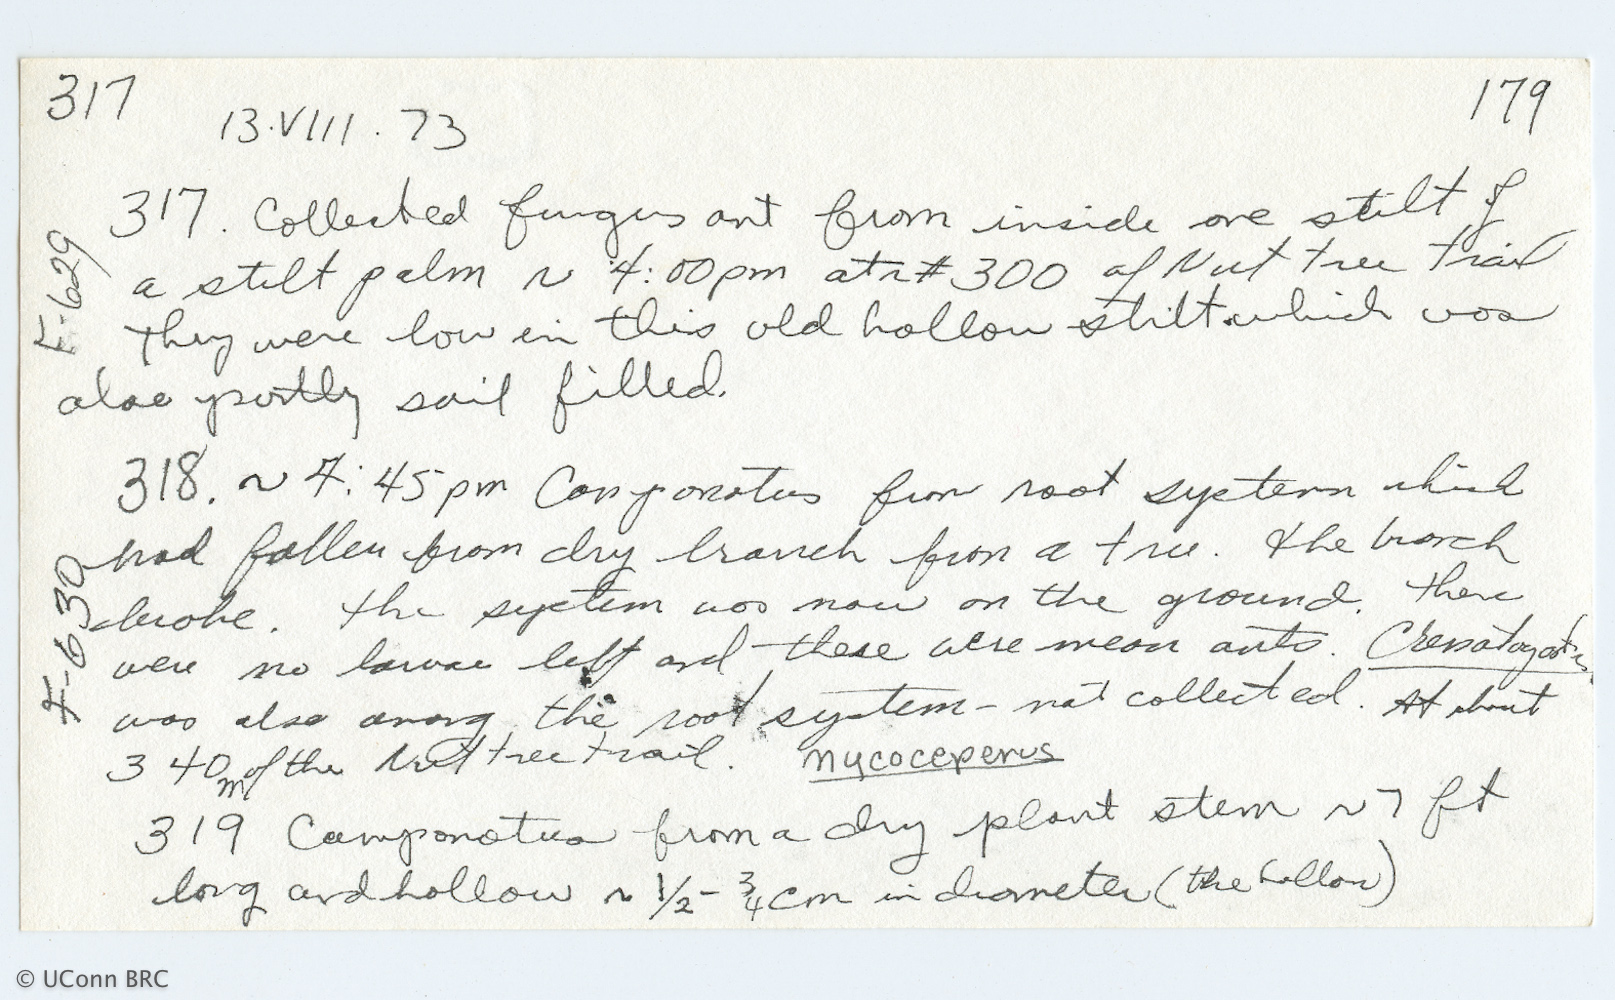 317
179
13.VIII.73
317. Collected fungus ant from inside one stilt of
a stilt palm ~ 4:00pm at # 300 of Nut tree trail
F-629
They were low in this old hollow stilt which was
also partly soil filled.
318. ~ 4:45pm Camponotus from root system which
had fallen from dry branch from a tree. The branch
F-630
broke. The system was now on the ground. There
were no larvae left and these were mean ants. Crematogaster
was also among the root system - not collected. At about
340m of the Nut tree trail. Mycoceperus
319 Camponotus from a dry plant stem ~ 7 ft
long and hollow ~ 1/2 - 3/4 cm in diameter (the hollow)
© UConn BRC